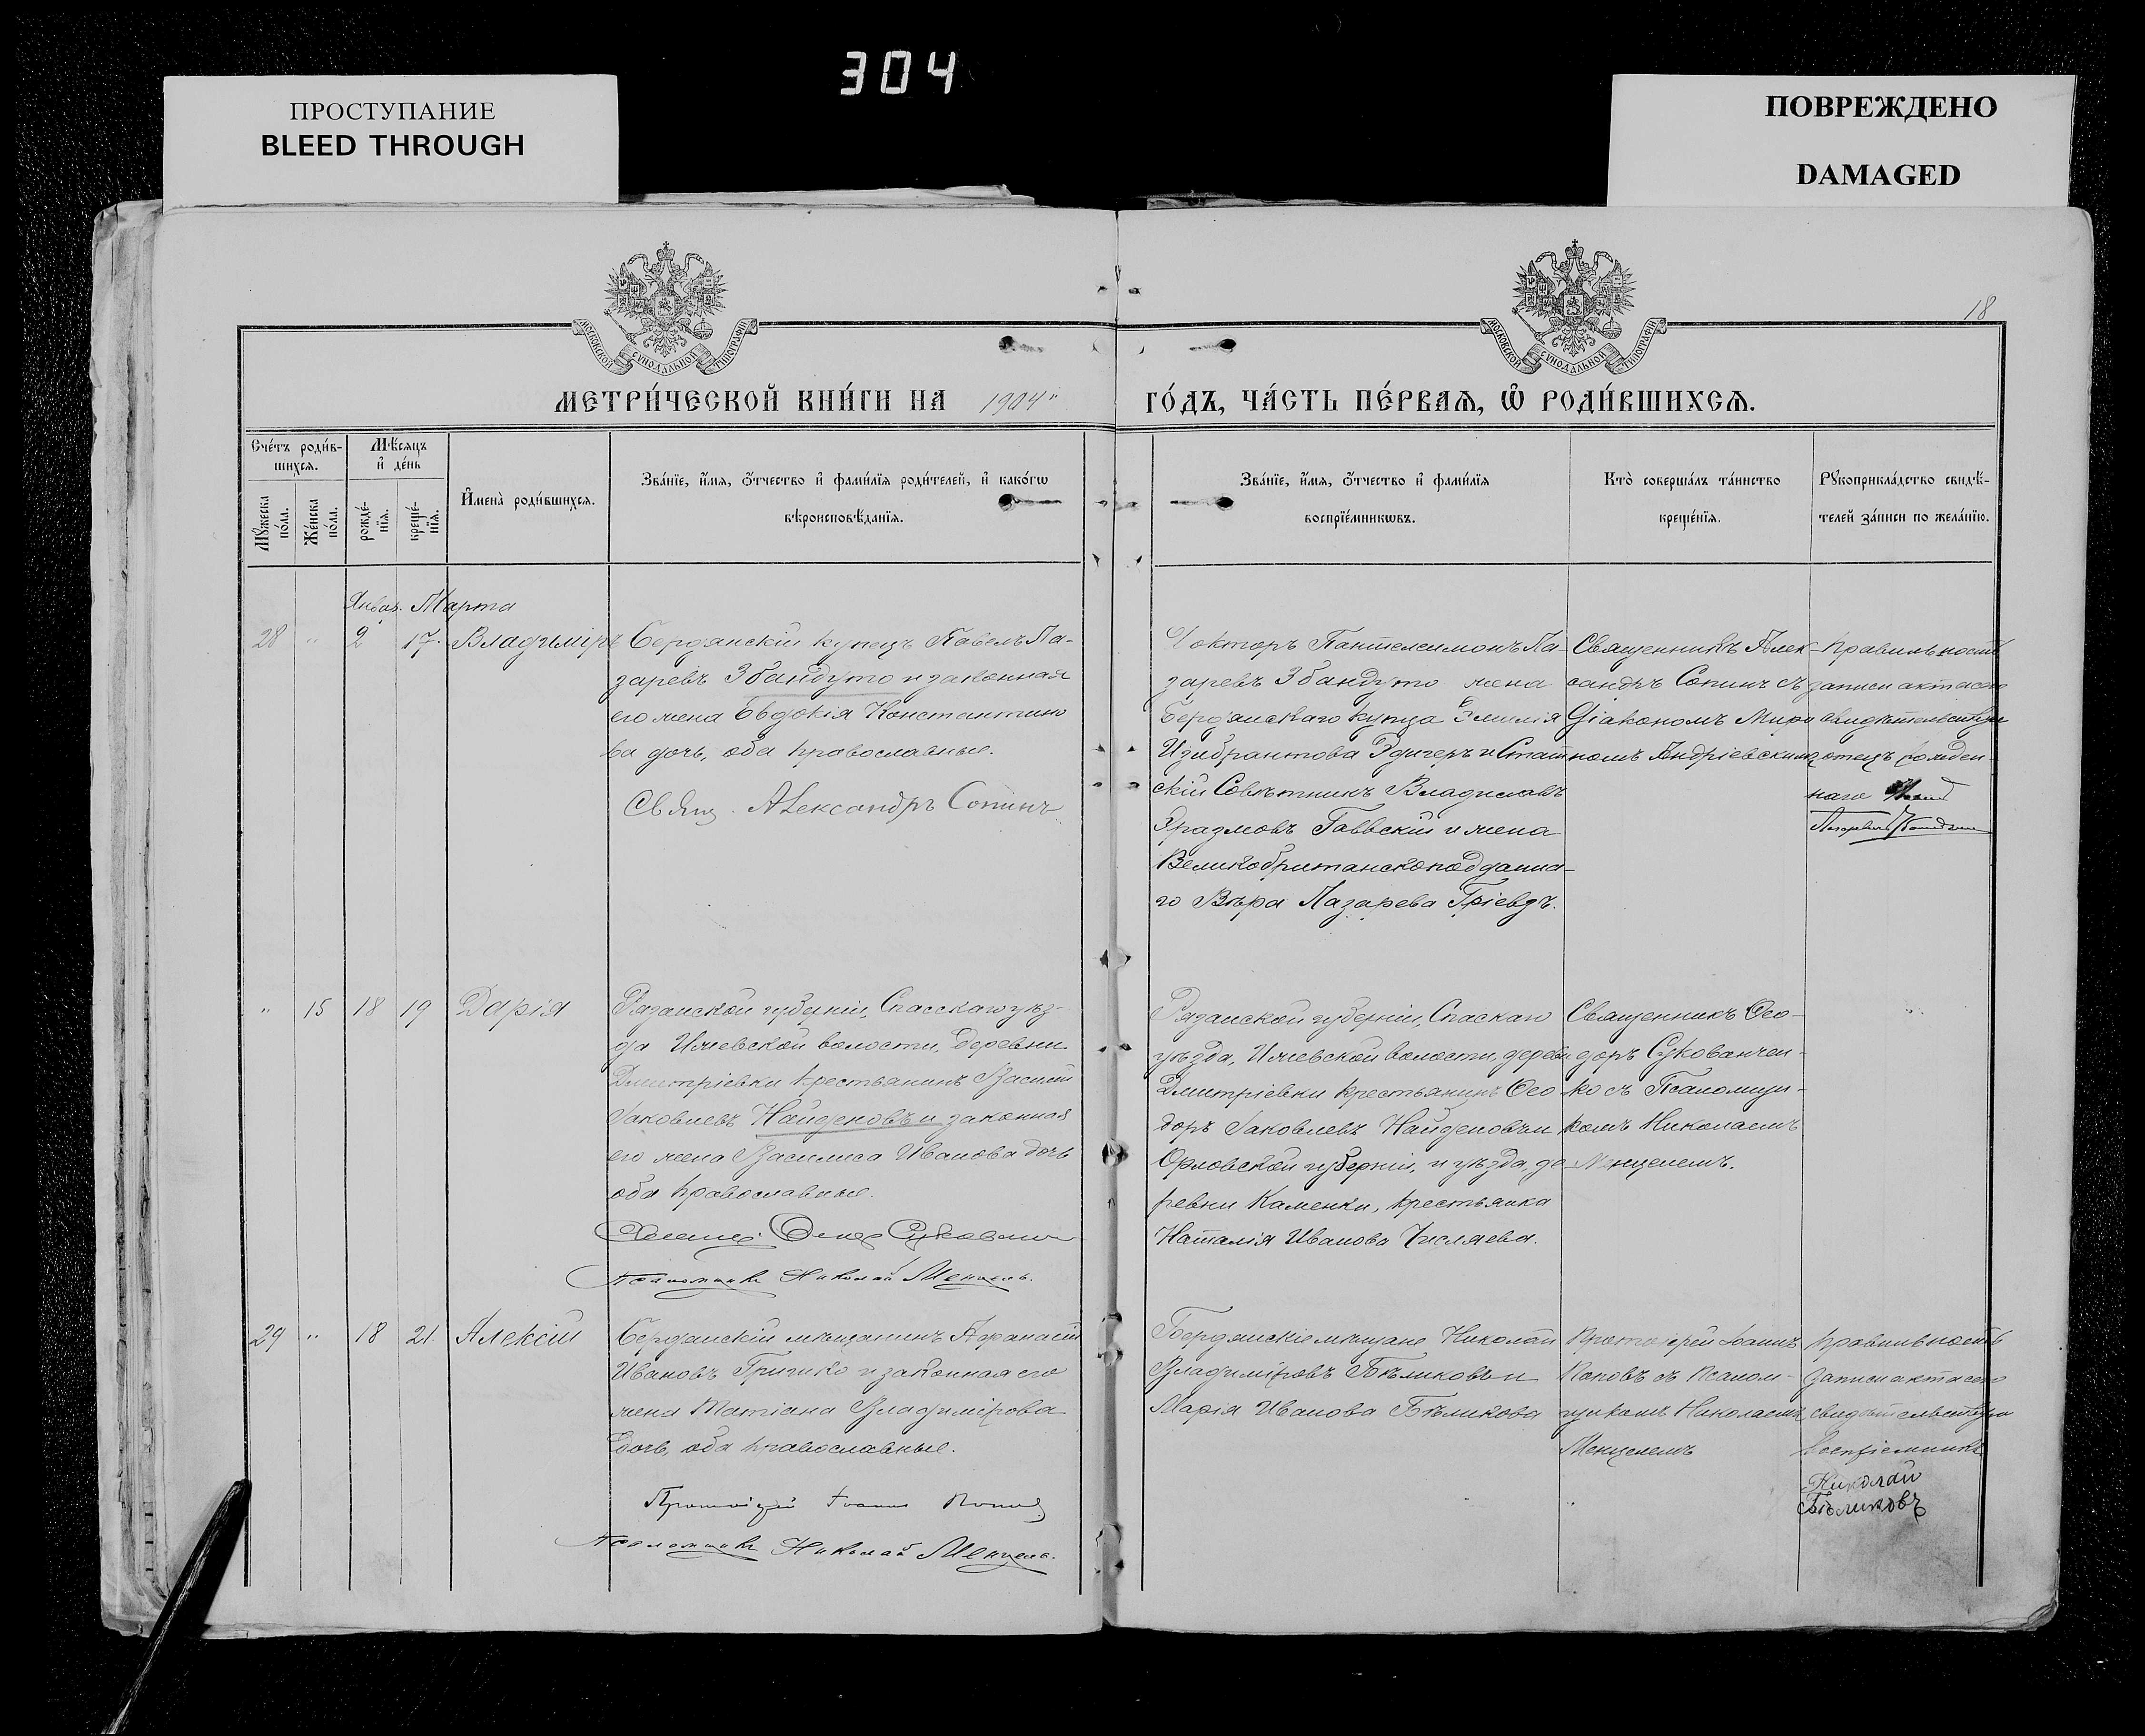 304
ПРОСТУПАНИЕ
BLEED THROUGH
ПОВРЕЖДЕНО
DAMAGED
МОСКОВСКОЙ СУНОДАЛЬНОЙ ТИПОГРАФІИ
МОСКОВСКОЙ СУНОДАЛЬНОЙ ТИПОГРАФІИ
18
МЕТРИ́ЧЕСКОЙ КНИ́ГИ НА 1904 ГО́ДЪ, ЧА́СТЬ ПЕ́РВАѦ, Ѡ РОДИ́ВШИХСѦ.
Сче́тъ роди́в-
шихсѧ.
Мꙋ́жеска по́ла.
Же́нска по́ла.
Мѣ́сѧцъ
и҆ де́нь
рожде́-
нїѧ.
креще́-
нїѧ.
И҆мена̀ роди́вшихсѧ.
Зва́нїе, и҆́мѧ, ѻ҆́тчество и҆ фами́лїѧ роди́телей, и҆ како́гѡ
вѣроисповѣ́данїѧ.
Зва́нїе, и҆́мѧ, ѻ҆́тчество и҆ фами́лїѧ
воспрїе́мникѡвъ.
Кто̀ соверша́лъ та́инство
креще́нїѧ.
Рꙋкоприкла́дство свидѣ́-
телей за́писи по жела́нїю.
Январ. Марта
28 " 2 17. Владиміръ
Бердянскій купецъ Павелъ Ла-
заревъ Збандуто и законная
его жена Евдокія Константино
ва дочь, оба православные.
Свящ. Александръ Сопинъ
Докторъ Пантелеимонъ Ла-
заревъ Збандуто жена
Бердянскаго купца Эмилія
Эдигеръ и Стат
скій Совѣтникъ Владиславъ
Эразмовъ и жена
Великобританскоподданна-
го Вѣра Лазарева Гріевзъ.
Священникъ Алек-
сандръ Сопинъ съ
Діакономъ Миро
номъ Андріевскимъ
Правильность
записи акта сего
свидѣтельствую
отецъ рожден-
наго
" 15 18 19 Дарія
Рязанской губерніи, Спасскаго уѣз-
да Ижевской волости, деревни
Дмитріевки крестьянинъ Василій
Іаковлевъ Найденовъ и законная
его жена Василиса Иванова дочь
оба православные.
Псаломщикъ Николай Менцель.
Рязанской губерніи, Спаскаго
уѣзда, Ижевской волости, деревн
Дмитріевки крестьянинъ Ѳео
доръ Іаковлевъ Найденовъ и
Орловской губерніи, и уѣзда, де
ревни Каменки, крестьянка
Наталія Иванова Числяева.
Священникъ Ѳео-
доръ Сукованчен-
ко съ Псаломщи-
комъ Николаемъ
Менцелемъ.
29 " 18 21 Алексій
Бердянскій мѣщанинъ Афанасій
Ивановъ Гришко и законная его
жена Татіана Владимірова
дочь, оба православные.
Протоіерей Іоаннъ Поповъ
Псаломщикъ Николай Менцель.
Бердянскіе мѣщане Николай
Владиміровъ Бѣликовъ и
Марія Иванова Бѣликова
Протоіерей Іоаннъ
Поповъ съ Псалом-
щикомъ Николаемъ
Менцелемъ
Правильность
записи акта сего
свидѣтельствую
Воспріемникъ
Николай
Бѣликовъ